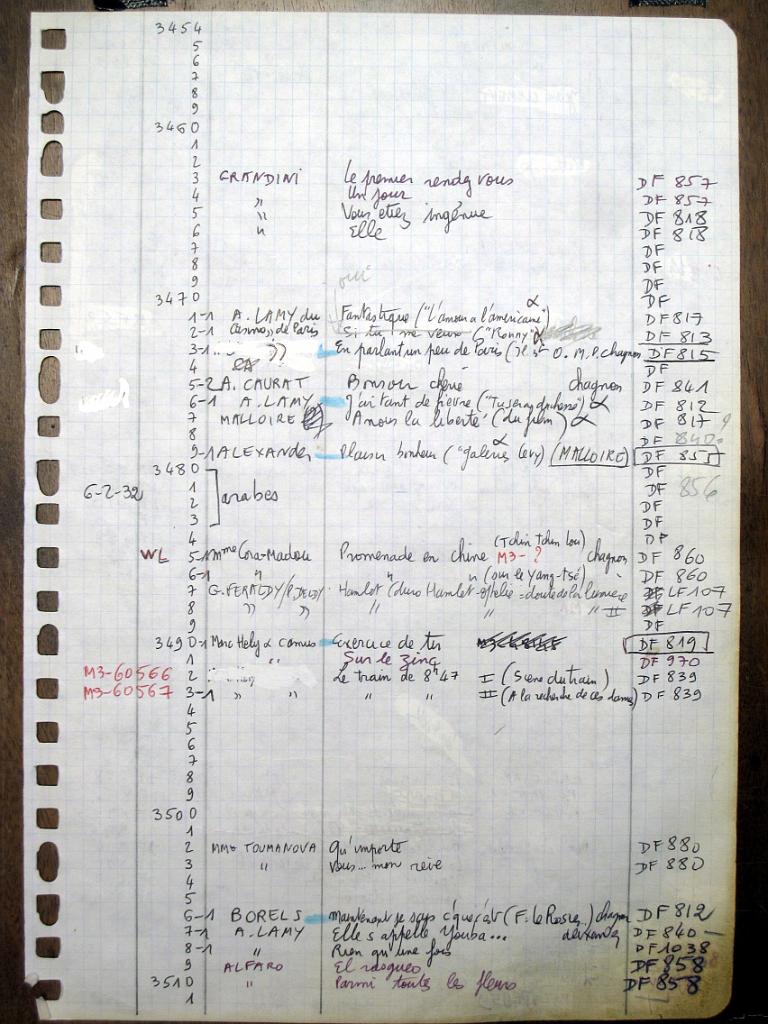 3454
5
6
7
8
9
3460
1
2
3 GRANDINI Le premier rendez vous DF 857
4 " Un jour DF 857
5 " Vous etiez ingénue DF 818
6 " Elle DF 818
7 DF
8 DF
9 DF
oui
3470 DF
1-1 A. LAMY du Fantastique ("L'amour a l'americaine") α DF 817
2-1 Casino de Paris Si tu me veux ("Ronny") α DF 813
3-1 " En parlant un peu de Paris ( O. M. P. chagnon DF 815
4 DF
5-2 A. CAURAT Bonsoir chérie chagnon DF 841
6-1 A. LAMY J'ai tant de fievre ( α DF 812
7 MALLOIRE A nous la liberté (du film) α DF 817
8 DF 840
9-1 ALEXANDER Plaisir bonheur ("galeries Levy) α MALLOIRE DF 855
3480 DF
6-2-32 1 arabes DF 856
2 DF
3 DF
4 (Tchin tchin lou) DF
WL 5-1 Mme Cora-Madou Promenade en chine M3-? chagnon DF 860
6-1 " " (sur le Yang-tsé) " DF 860
7 G. FERALDY/ Hamlet (duro Hamlet-ofelie = LF 107
8 " " " " II LF 107
9 DF
3490-1 Marc Hely & camus Exercice de tir DF 819
1 " Sur le zinc DF 970
M3-60566 2 Le train de 8h47 I (Scene du train) DF 839
M3-60567 3-1 " " " " II (A la recherche de ces dames) DF 839
4
5
6
7
8
9
3500
1
2 MMe TOUMANOVA Qu'importe DF 880
3 " Vous... mon rêve DF 880
4
5
6-1 BORELS Maintenant je sais c'que c'est (F. le chagnon DF 812
7-1 A. LAMY Elle s'appelle Youba... DF 840
8-1 " Rien qu'une fois DF 1038
9 ALFARO El rasgueo DF 858
3510 " Parmi toutes les fleurs DF 858
1